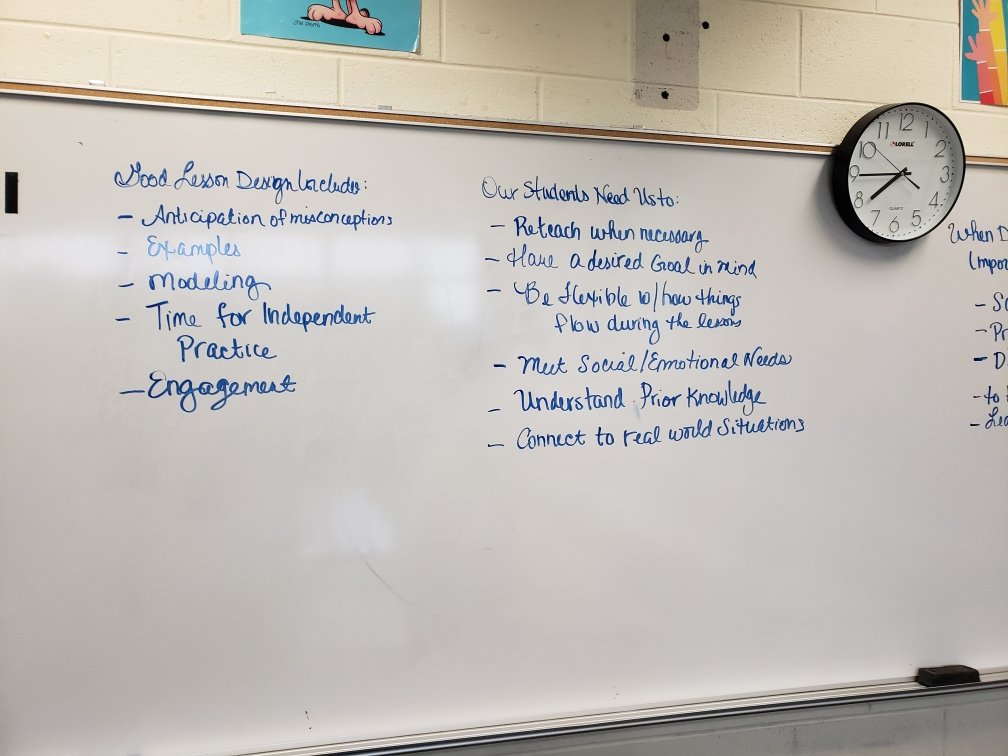 Good Lesson Design Includes:
- Anticipation of misconceptions
- Examples
- Modeling
- Time for Independent
Practice
- Engagement
Our Students Need Us to:
- Reteach when necessary
- Have a desired Goal in mind
- Be flexible w/how things
flow during the lesson
- Meet Social/Emotional Needs
- Understand Prior Knowledge
- Connect to real world Situations
When D
(Impor
- Pr
- to
- Le
12
11 1
10 2
3
8 4
7 6 5
LORELL
QUARTZ
JIM DAVIS